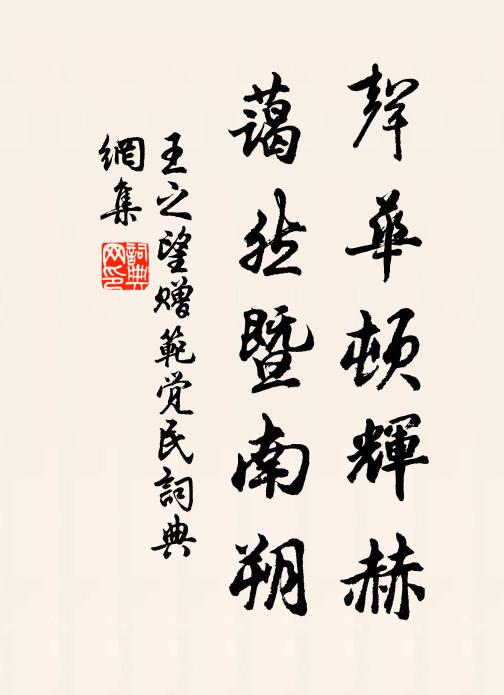 聲華頓輝赫
藹然暨南朔
王之望贈範覺民詞典
網集
詞典
网印